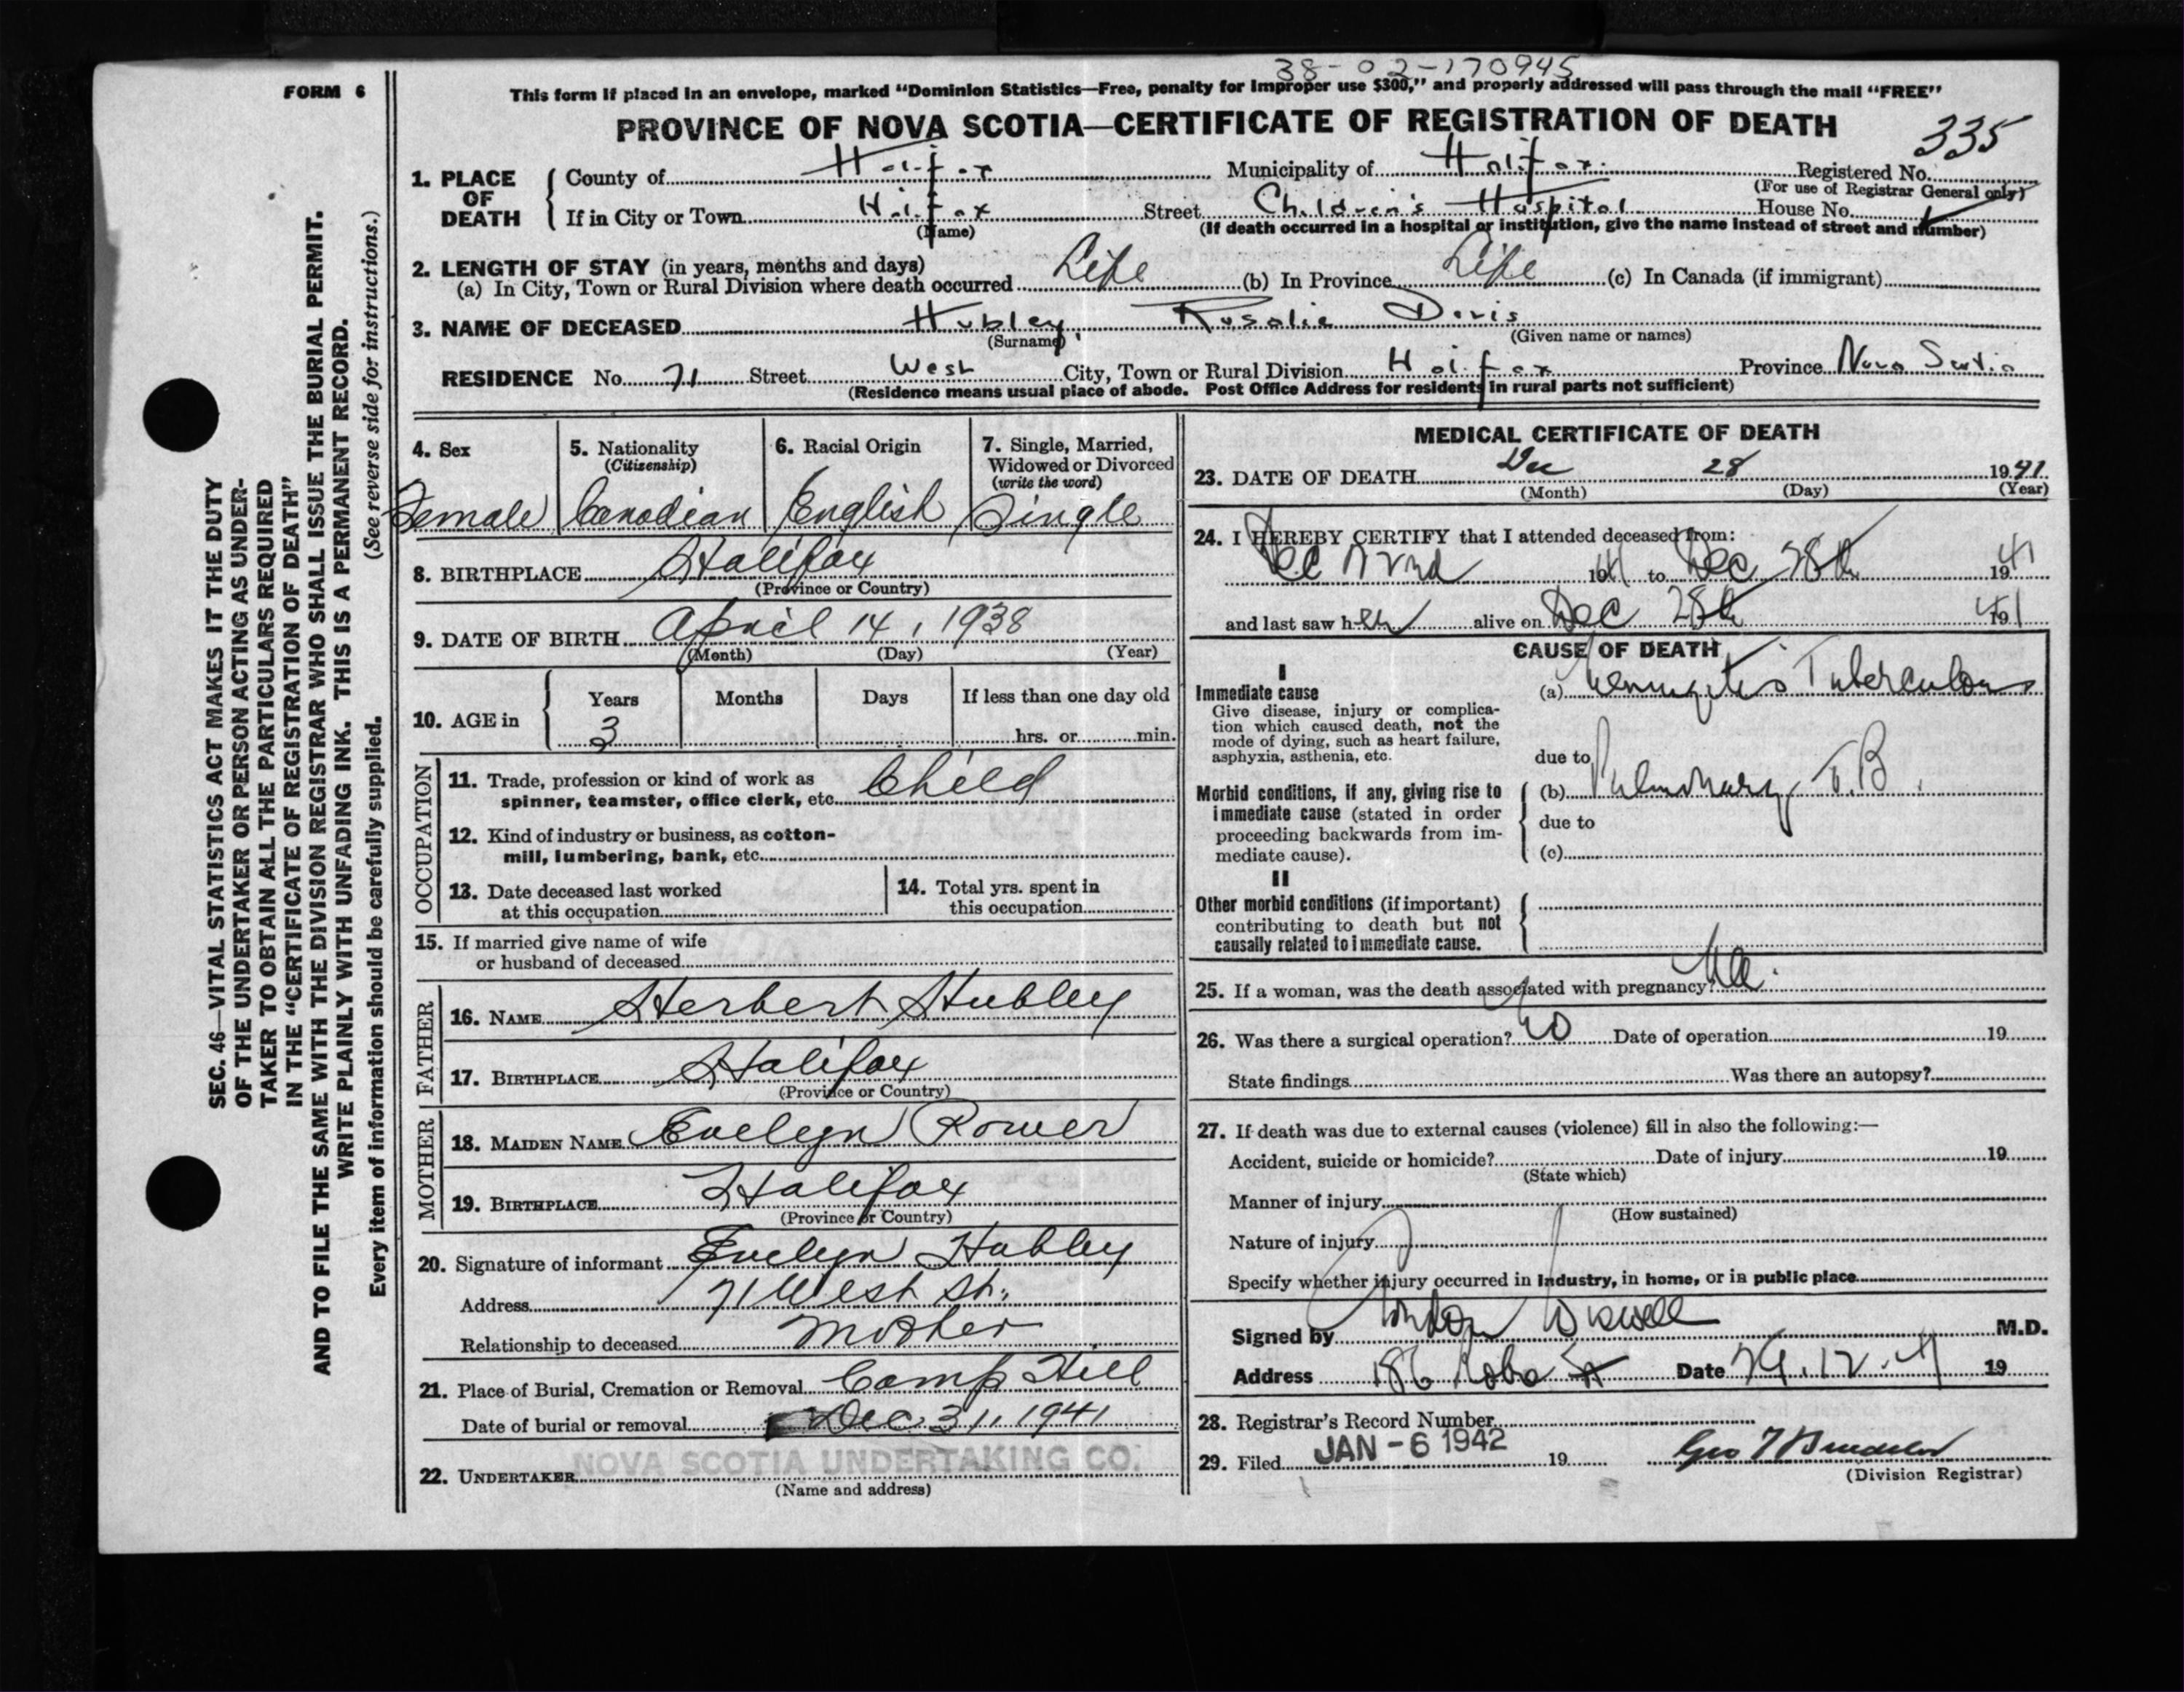 38-02-170945
FORM 6
This form if placed in an envelope, marked "Dominion Statistics—Free, penalty for improper use $300," and properly addressed will pass through the mail "FREE"
PROVINCE OF NOVA SCOTIA—CERTIFICATE OF REGISTRATION OF DEATH
335
1. PLACE OF DEATH
County of Halifax Municipality of Halifax Registered No.
(For use of Registrar General only)
If in City or Town Halifax Street Children's Hospital House No.
(Name) (If death occurred in a hospital or institution, give the name instead of street and number)
2. LENGTH OF STAY (in years, months and days)
(a) In City, Town or Rural Division where death occurred Life (b) In Province Life (c) In Canada (if immigrant)
3. NAME OF DECEASED Hubley, Rosalie Doris
(Surname) (Given name or names)
RESIDENCE No. 71 Street West City, Town or Rural Division Halifax Province Nova Scotia
(Residence means usual place of abode. Post Office Address for residents in rural parts not sufficient)
4. Sex
Female
5. Nationality
(Citizenship)
Canadian
6. Racial Origin
English
7. Single, Married,
Widowed or Divorced
(write the word)
Single
8. BIRTHPLACE Halifax
(Province or Country)
9. DATE OF BIRTH April 14, 1938
(Month) (Day) (Year)
10. AGE in
Years Months Days If less than one day old
3 hrs. or min.
OCCUPATION
11. Trade, profession or kind of work as
spinner, teamster, office clerk, etc. Child
12. Kind of industry or business, as cotton-
mill, lumbering, bank, etc.
13. Date deceased last worked
at this occupation
14. Total yrs. spent in
this occupation
15. If married give name of wife
or husband of deceased
FATHER
16. NAME Herbert Hubley
17. BIRTHPLACE Halifax
(Province or Country)
MOTHER
18. MAIDEN NAME Evelyn
19. BIRTHPLACE Halifax
(Province or Country)
20. Signature of informant Evelyn Hubley
Address 71 West St.
Relationship to deceased Mother
21. Place of Burial, Cremation or Removal Camp Hill
Date of burial or removal Dec. 31, 1941
22. UNDERTAKER NOVA SCOTIA UNDERTAKING CO.
(Name and address)
MEDICAL CERTIFICATE OF DEATH
23. DATE OF DEATH Dec 28 1941
(Month) (Day) (Year)
24. I HEREBY CERTIFY that I attended deceased from:
Dec 22nd 1941 to Dec 28th 1941
and last saw her alive on Dec 28th 1941
CAUSE OF DEATH
I
Immediate cause
Give disease, injury or complica-
tion which caused death, not the
mode of dying, such as heart failure,
asphyxia, asthenia, etc.
(a) Meningitis Tuberculous
due to
Morbid conditions, if any, giving rise to
immediate cause (stated in order
proceeding backwards from im-
mediate cause).
(b) Pulmonary T.B.
due to
(c)
II
Other morbid conditions (if important)
contributing to death but not
causally related to immediate cause.
25. If a woman, was the death associated with pregnancy?
26. Was there a surgical operation? No Date of operation 19
State findings Was there an autopsy?
27. If death was due to external causes (violence) fill in also the following:—
Accident, suicide or homicide? Date of injury 19
(State which)
Manner of injury
(How sustained)
Nature of injury
Specify whether injury occurred in industry, in home, or in public place
Signed by Gordon Wiswell M.D.
Address 186 Robie St Date 29.12.41 19
28. Registrar's Record Number
29. Filed JAN -6 1942 19
(Division Registrar)
SEC. 46—VITAL STATISTICS ACT MAKES IT THE DUTY
OF THE UNDERTAKER OR PERSON ACTING AS UNDER-
TAKER TO OBTAIN ALL THE PARTICULARS REQUIRED
IN THE "CERTIFICATE OF REGISTRATION OF DEATH"
AND TO FILE THE SAME WITH THE DIVISION REGISTRAR WHO SHALL ISSUE THE BURIAL PERMIT.
WRITE PLAINLY WITH UNFADING INK. THIS IS A PERMANENT RECORD.
Every item of information should be carefully supplied. (See reverse side for instructions.)